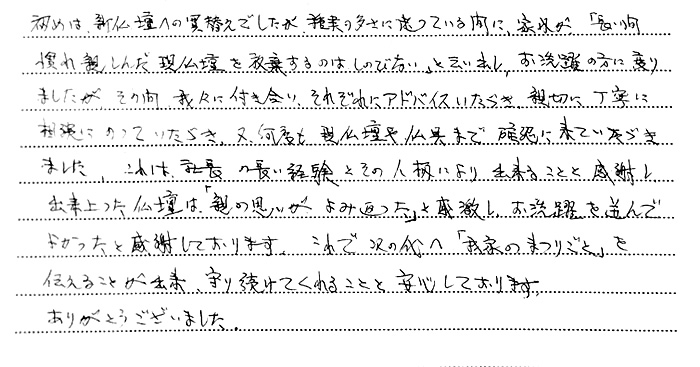 初めは、新仏壇への買替えでしたが、種類の多さに迷っている内に、家内が「長い間
慣れ親しんだ現仏壇を放棄するのはしのびない」と云い出し、お洗濯の方に乗り
ましたが、その間、我々に付き合い、それぞれにアドバイスいただき、親切に丁寧に
相談にのっていただき、又、何度も現仏壇や仏具まで確認に来ていただき
ました。これは、社長の長い経験とその人柄により出来ることと感謝し、
出来上った仏壇は、「親の思いがよみ返った」と感激し、お洗濯を選んで
よかったと感謝しております。これで次の代へ「我家のまつりごと」を
伝えることが出来、守り続けてくれることと安心しております。
ありがとうございました。